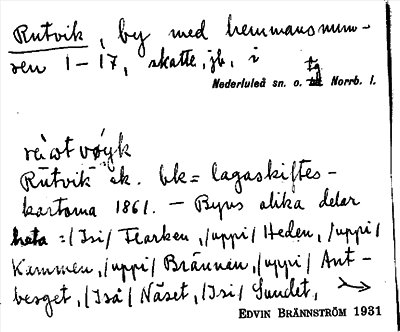 Rutvik, by med hemmansnum-
ren 1–17, skatte, jb, i
Nederluleå sn. o. tg Norrb. l.
Rutvik ek. bk = lagaskiftes-
kartorna 1861. — Byns olika delar
heta: /Isi/ Flarken, /uppi/ Heden, /uppi/
Kammen, /uppi/ Brännan, /uppi/ Ant-
berget, /Iså/ Näset, /Isi/ Sundet,
EDVIN BRÄNNSTRÖM 1931